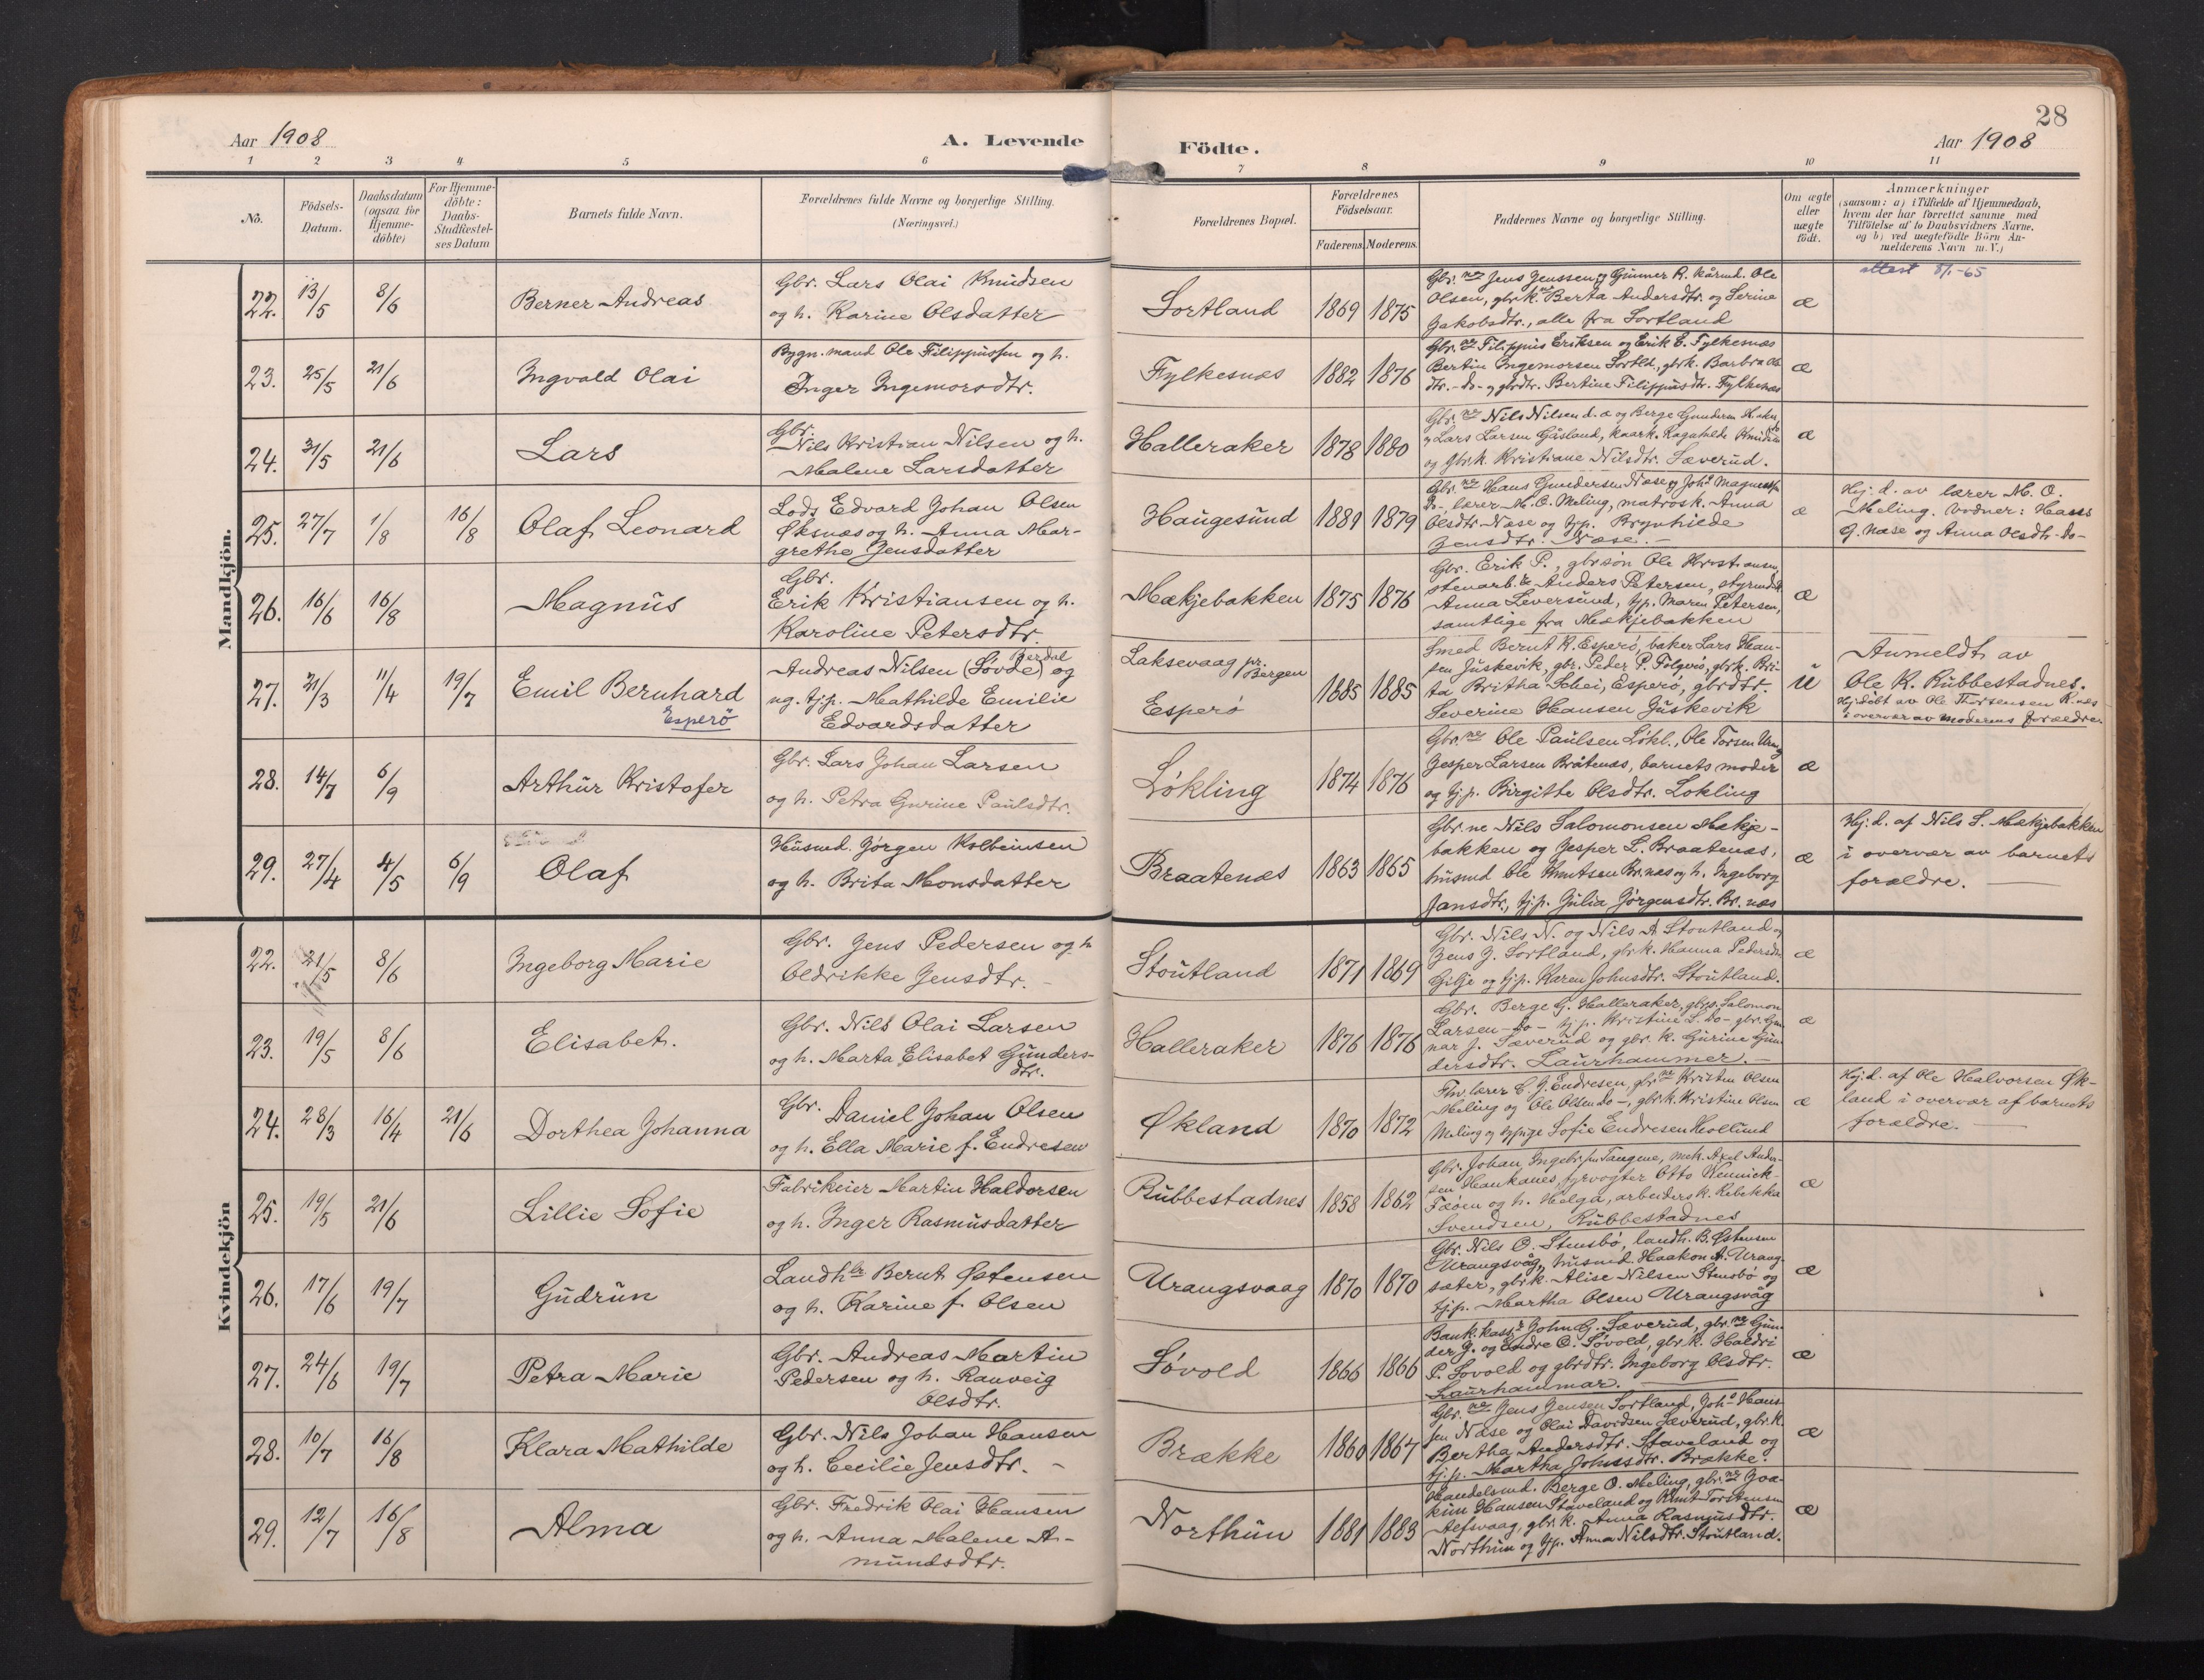 28
Aar 1908
A. Levende
Födte.
Aar 1908
1 2 3 4 5 6 7 8 9 10 11
No.
Födsels-
Datum.
Daabsdatum
(ogsaa for
Hjemme-
döbte)
For Hjemme-
döbte:
Daabs-
Stadfæstel-
ses Datum
Barnets fulde Navn.
Forældrenes fulde Navne og borgerlige Stilling.
(Næringsvei.)
Forældrenes Bopæl.
Forældrenes
Födselsaar.
Faderens. Moderens.
Faddernes Navne og borgerlige Stilling.
Om ægte
eller
uægte
födt.
Anmærkninger
(saasom: a) i Tilfælde af Hjemmedaab,
hvem der har forrettet samme med
Tilföielse af to Daabsvidners Navne,
og b) ved uægtefödte Börn An-
melderens Navn m. V.)
Mandkjön.
22. 13/5 8/6
Berner Andreas
Gbr. Lars Olai Knudsen
og h. Karine Olsdatter
Sortland 1869 1875
Gbr. ne Jens Jenssen og Gunner R. kårmd. Ole
Olsen, gbrk. Berta Andersdtr. og Serine
Jakobsdtr., alle fra Sortland
æ
attest 8/1-65
23. 25/5 21/6
Ingvald Olai
Bygn.mand Ole Filippussen og h.
Inger Ingemorsdtr.
Fylkesnæs 1882 1876
Gbr. ne Filippus Eriksen og Erik E. Fylkesnæs
Bertin Ingemorsen Sortld., gbrk. Barbra Ols
dtr. -do- og gbrdtr. Bertine Filippusdtr. Fylkesnæs
æ
24. 31/5 21/6
Lars
Gbr.
Nils Kristian Nilsen og h.
Malene Larsdatter
Halleraker 1878 1880
Gbr. ne Nils Nilsen d. æ og Berge Gundersn H.aker
og Lars Larsen Gåsland, kaark. Ragnhilde
og gbrk. Kristiane Nilsdtr. Sæverud.
æ
25. 27/7 1/8 16/8
Olaf Leonard
Lods Edvard Johan Olsen
Øksnæs og h. Anna Mar-
grethe Jensdatter
Haugesund 1881 1879
Gbr. ne Hans Gundersen Næse og Joh. Magnus
Do-, lærer M. O. Meling, matrosk. Anna
Olsdtr. Næse og tjp. Brynhilde
Jensdtr. Næse. -
æ
Hj. d. av lærer M. O.
Meling. Vidner: Hans
G. Næse og Anna Olsdtr. -do-
26. 16/6 16/8
Magnus
Gbr.
Erik Kristiansen og h.
Karoline Petersdtr.
Mækjebakken 1875 1876
Gbr. Erik P., gbrsøn Ole Kristiansen,
stenarb. Anders Petersen, styrmdk.
Anna Leversund, tjp. Maren Petersen,
samtlige fra Mækjebakken
æ
27. 31/3 11/4 19/7
Emil Bernhard
Esperö
Andreas Nilsen (Søvde) og
Berdal
ug. tj.p. Mathilde Emilie
Edvardsdatter
Laksevaag pr.
Bergen
Esperø
1885 1885
Smed Bernt K. Esperø, baker Lars Han-
sen Juskevik, gbr. Peder P. Folgerö, gbrk. Bri-
ta Britha Schei, Esperø, gbrdtr.
Severine Hansen Juskevik
u
Anmeldt av
Ole K. Rubbestadnes.
Hj. döbt av Ole Thorsensen R.næs
i overvær av moderens forældre.
28. 14/7 6/9
Arthur Kristofer
Gbr. Lars Johan Larsen
og h. Petra Gurine Paulsdtr.
Løkling 1874 1876
Gbr. ne Ole Paulsen Løkl., Ole Torsen Urang
Jesper Larsen Bråtenæs, barnets moder
og tj.p. Birgitte Olsdtr. Løkling
æ
29. 27/4 4/5 6/9
Olaf
Husmd. Jørgen Kolbeinsen
og h. Brita Monsdatter
Braatenæs 1863 1865
Gbr. ne Nils Salomonsen Mækje-
bakken og Jesper L. Braatenæs,
husmd Ole Knutsen Br.næs og h. Ingeborg
Jansdtr., tj.p. Julia Jørgensdtr. Br.næs
æ
Hj. d. af Nils S. Mækjebakken
i overvær av barnets
forældre.
Kvindekjön
22. 21/5 8/6
Ingeborg Marie
Gbr. Jens Pedersen og h
Oldrikke Jensdtr. -
Stoutland 1871 1869
Gbr. Nils N. og Nils A Stoutland og
Jens J. Sortland, gbrk. Hanna Pedersdtr
Gilje og tj.p. Karen Johnsdtr. Stoutland.
æ
23. 19/5 8/6
Elisabet.
Gbr. Nils Olai Larsen
og h. Marta Elisabet Gunders-
dtr.
Halleraker 1876 1876
Gbr. Berge G. Halleraker, gbrs. Salomon
Larsen -do- tj.p. Kristine L. Do- gbr. Gun
nar J. Sæverud og gbr. k. Gurine Gun
dersdtr. Laurhammer. -
æ
24. 28/3 16/4 21/6
Dorthea Johanna
Gbr. Daniel Johan Olsen
og h. Ella Marie f. Endresen
Økland 1870 1872
Fhv. lærer C. J. Endresen, gbr. ne Kristen Olsen
Meling og Ole Olsen do-, gbrk. Kristine Olsen
Meling og tjpige Sofie Endresen Hollund
æ
Hj. d. af Ole Halvorsen Øk-
land i overvær af barnets
forældre.
25. 19/5 21/6
Lillie Sofie
Fabrikeier Martin Haldorsen
og h. Inger Rasmusdatter
Rubbestadnes 1858 1862
Gbr. Johan Tangene, mek. Axel Ander-
sen Haukanes, fyrvogter Otto Wennick-
Fæøen og h. Helga, arbeidersk. Rebekka
Svendsen, Rubbestadnes
æ
26. 17/6 19/7
Gudrun
Landhlr Bernt Østensen
og h. Karine f. Olsen
Urangsvaag 1870 1870
Gbr. Nils O. Stensbø, landh. B. Østensen
Urangsvåg, husmd. Haakon A. Urang-
sæter, gbrk. Alise Nilsen Stensbø og
tjp. Martha Olsen Urangsvåg
æ
27. 24/6 19/7
Petra Marie
Gbr. Andreas Martin
Pedersen og h. Ranveig
Olsdtr.
Søvold 1866 1866
Bank.kass. John G. Sæverud, gbr. ne Gun-
der J. og Endre O. Søvold, gbr. k. Haldri
P. Søvold og gbrdtr. Ingeborg Olsdtr.
Laurhammar.
æ
28. 10/7 16/8
Klara Mathilde
Gbr. Nils Johan Hansen
og h. Cecilie Jensdtr. -
Brække 1860 1867
Gbr. ne Jens Jensen Sortland, Joh. Han-
sen Næse og Olai Davidsen Sæverud, gbr.k.
Bertha Andersdtr. Staveland og
tj.p. Martha Johnsdtr. Brække.
æ
29. 12/7 16/8
Alma
Gbr. Fredrik Olai Hansen
og h. Anna Malene A-
mundsdtr.
Northun 1881 1883
Handelsmd. Berge O. Meling, gbr. ne Joa-
kim Hansen Staveland og Knut Torstensen
Aefsvaag, gbr. k. Anna Rasmusdtr.
Northun og tjp. Anna Nilsdtr. Stoutland.
æ